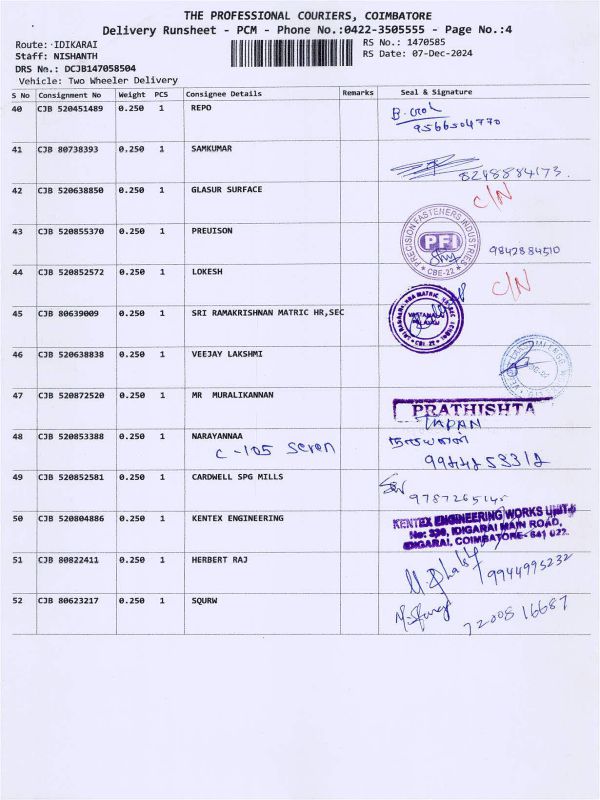 THE PROFESSIONAL COURIERS, COIMBATORE
Delivery Runsheet - PCM - Phone No.:0422-3505555 - Page No.:4
Route: IDIKARAI
RS No.: 1470585
Staff: NISHANTH
RS Date: 07-Dec-2024
DRS No.: DCJB147058504
Vehicle: Two Wheeler Delivery
S No Consignment No Weight PCS Consignee Details Remarks Seal & Signature
40 CJB 520451489 0.250 1 REPO
9566504770
41 CJB 80738393 0.250 1 SAMKUMAR
8248884173.
42 CJB 520638850 0.250 1 GLASUR SURFACE
C/N
43 CJB 520855370 0.250 1 PREUISON
PRECISION FASTENERS INDUSTRIES
PFI
CBE-22
9842884510
44 CJB 520852572 0.250 1 LOKESH
C/N
45 CJB 80639009 0.250 1 SRI RAMAKRISHNAN MATRIC HR,SEC
46 CJB 520638838 0.250 1 VEEJAY LAKSHMI
47 CJB 520872520 0.250 1 MR MURALIKANNAN
PRATHISHTA
48 CJB 520853388 0.250 1 NARAYANNAA
C-105 Seren
நாராயணன்
49 CJB 520852581 0.250 1 CARDWELL SPG MILLS
50 CJB 520804886 0.250 1 KENTEX ENGINEERING
KENTEX ENGINEERING WORKS UNIT
IDIGARAI MAIN ROAD,
IDIGARAI, COIMBATORE- 641 022.
51 CJB 80822411 0.250 1 HERBERT RAJ
9944995232
52 CJB 80623217 0.250 1 SQURW
7200816687